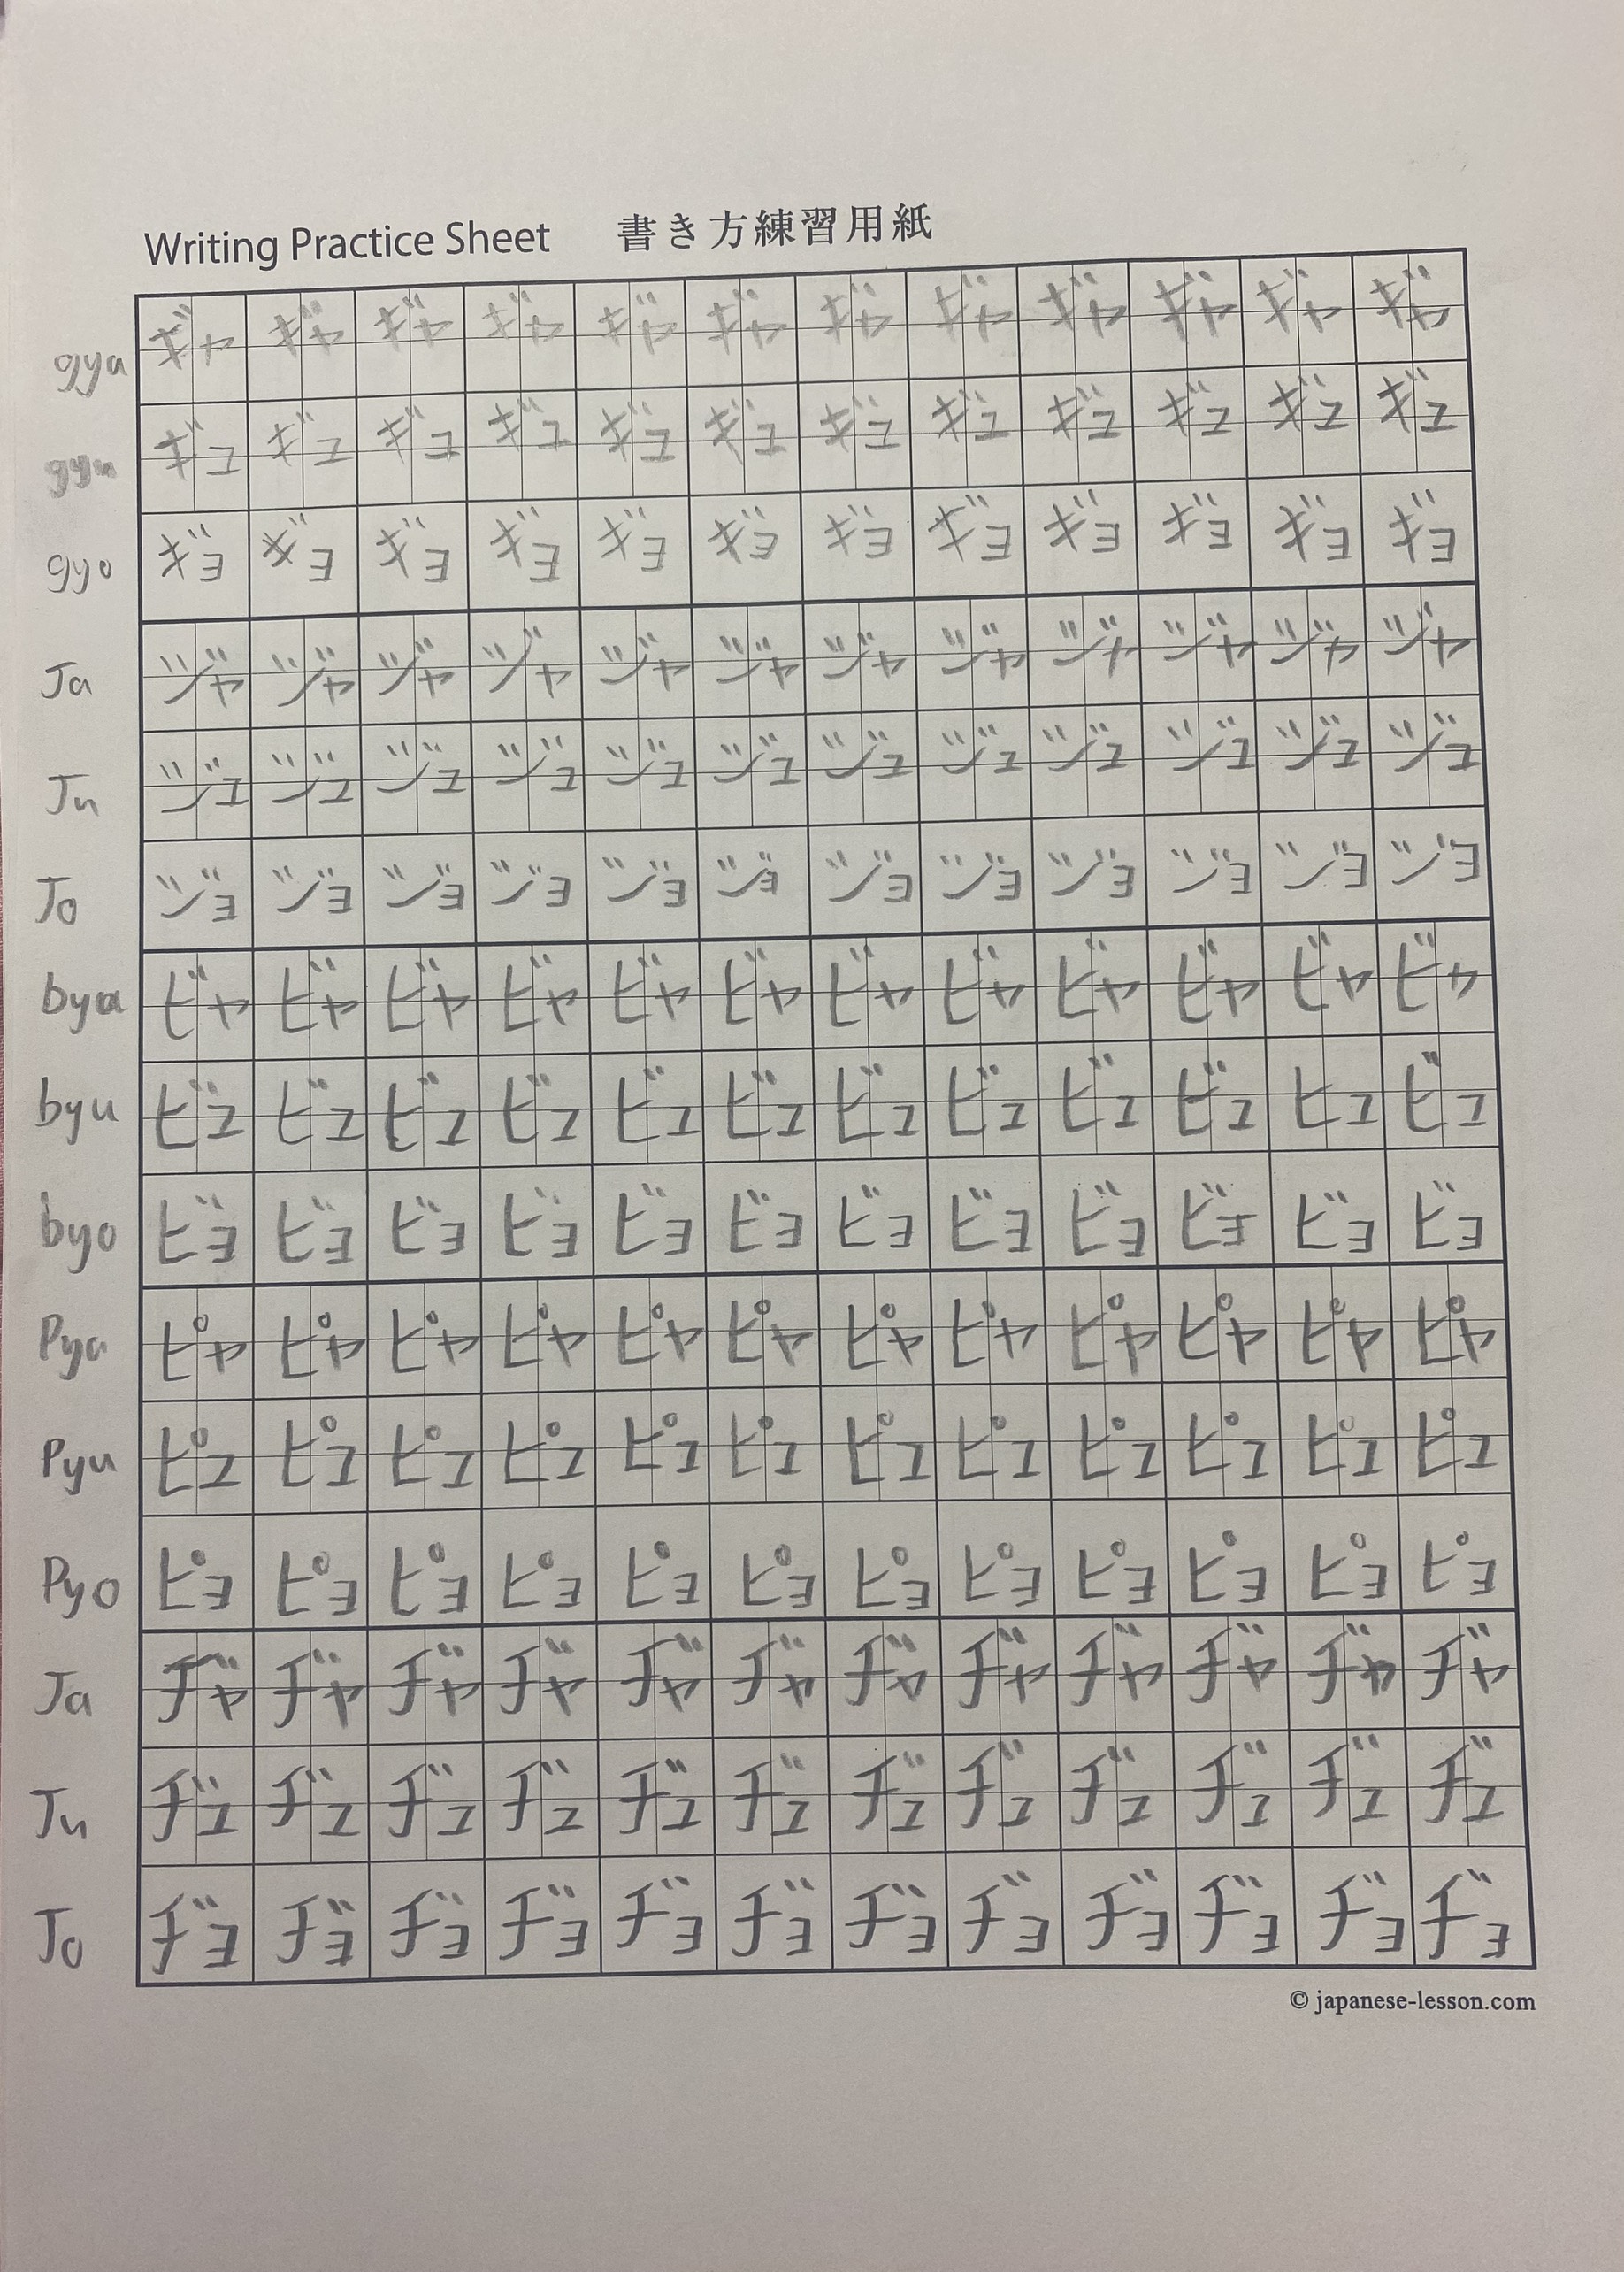 Writing Practice Sheet 書き方練習用紙
gya ギャ ギャ ギャ ギャ ギャ ギャ ギャ ギャ ギャ ギャ ギャ ギャ
gyu ギュ ギュ ギュ ギュ ギュ ギュ ギュ ギュ ギュ ギュ ギュ ギュ
gyo ギョ ギョ ギョ ギョ ギョ ギョ ギョ ギョ ギョ ギョ ギョ ギョ
Ja ジャ ジャ ジャ ジャ ジャ ジャ ジャ ジャ ジャ ジャ ジャ ジャ
Ju ジュ ジュ ジュ ジュ ジュ ジュ ジュ ジュ ジュ ジュ ジュ ジュ
Jo ジョ ジョ ジョ ジョ ジョ ジョ ジョ ジョ ジョ ジョ ジョ ジョ
bya ビャ ビャ ビャ ビャ ビャ ビャ ビャ ビャ ビャ ビャ ビャ ビャ
byu ビュ ビュ ビュ ビュ ビュ ビュ ビュ ビュ ビュ ビュ ヒュ ビュ
byo ビョ ビョ ビョ ビョ ビョ ビョ ビョ ビョ ビョ ビョ ビョ ビョ
Pya ピャ ピャ ピャ ピャ ピャ ピャ ピャ ピャ ピャ ピャ ピャ ピャ
Pyu ピュ ピュ ピュ ピュ ピュ ピュ ピュ ピュ ピュ ピュ ピュ ピュ
Pyo ピョ ピョ ピョ ピョ ピョ ピョ ピョ ピョ ピョ ピョ ピョ ピョ
Ja ヂャ ヂャ ヂャ ヂャ ヂャ ヂャ ヂャ ヂャ ヂャ ヂャ ヂャ ヂャ
Ju ヂュ ヂュ ヂュ ヂュ ヂュ ヂュ ヂュ ヂュ ヂュ ヂュ ヂュ ヂュ
Jo ヂョ ヂョ ヂョ ヂョ ヂョ ヂョ ヂョ ヂョ ヂョ ヂョ ヂョ ヂョ
© japanese-lesson.com